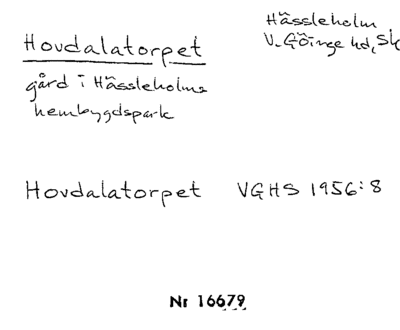 Hovdalatorpet
Hässleholm
V. Göinge hd, Sk
gård i Hässleholms
hembygdspark
Hovdalatorpet VGHS 1956:8
Nr 16679